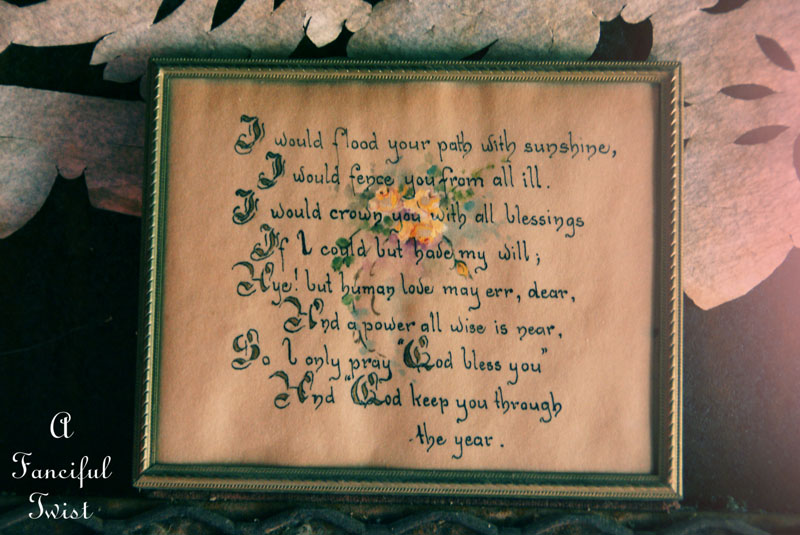 I would flood your path with sunshine,
I would fence you from all ill.
I would crown you with all blessings
If I could but have my will;
Aye! but human love may err, dear,
And a power all wise is near,
So I only pray "God bless you"
And "God keep you through
the year.
A
Fanciful
Twist